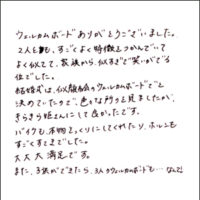 ウェルカムボードありがとうございました。
2人とも、すごくよく特徴をつかんでいて
よく似てて、家族から、似すぎで笑いがでる
位でした。
結婚式は、似顔絵のウェルカムボードでと
決めていたので、色々な所を見ましたが、
きらきら姫さんにして良かったです。
バイクも、本物そっくりにしてくれたり、ポルンも
すごくすてきでした。
大大大満足です。
また、子供ができたら、3人のウェルカムボードも…なんて!